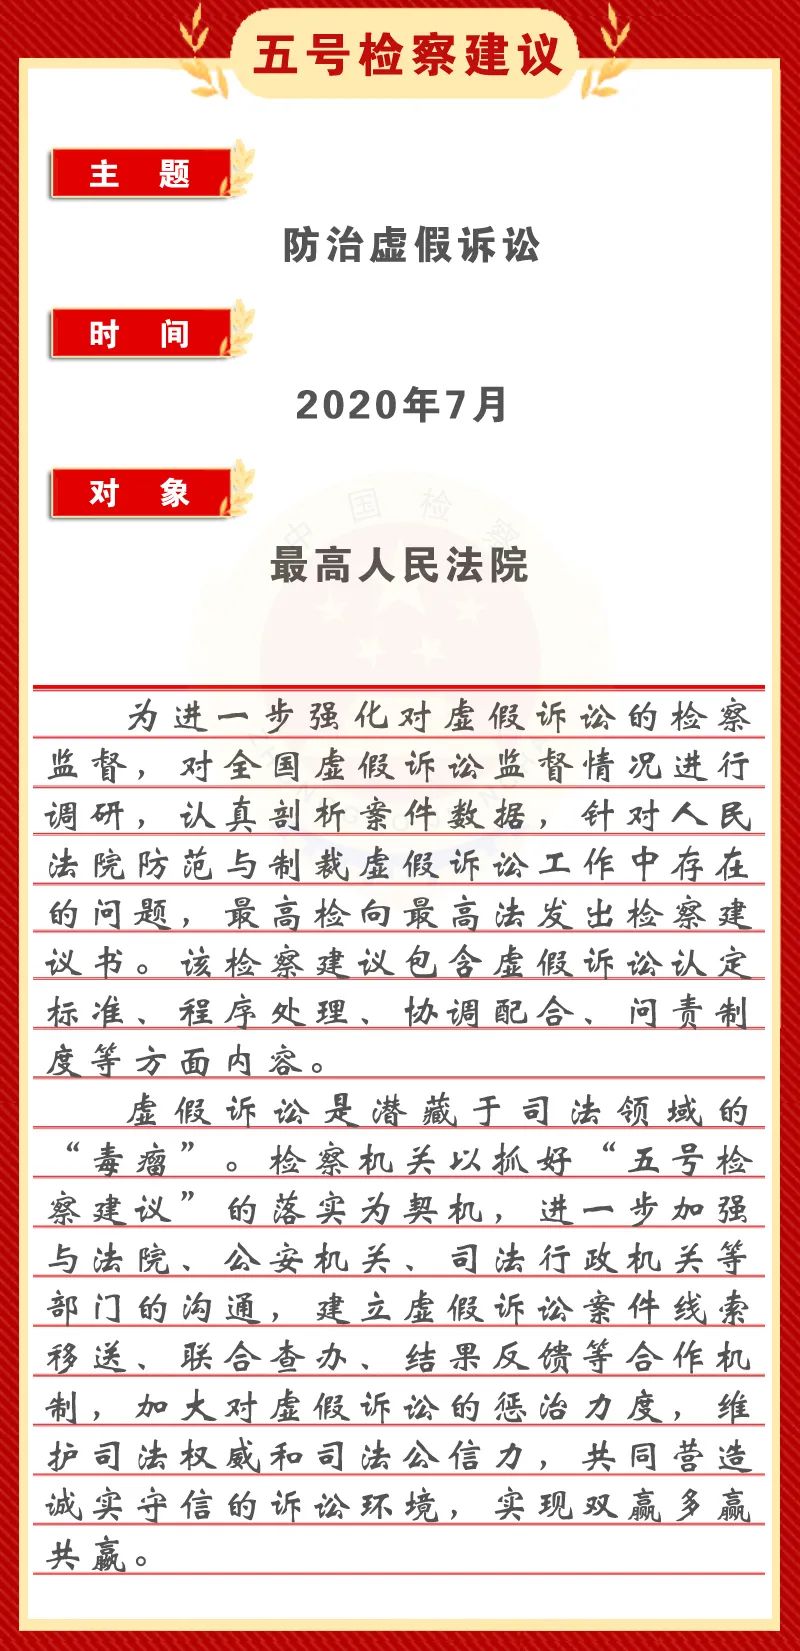 五号检察建议
主 题
防治虚假诉讼
时 间
2020年7月
对 象
中国检察
最高人民法院
为进一步强化对虚假诉讼的检察
监督，对全国虚假诉讼监督情况进行
调研，认真剖析案件数据，针对人民
法院防范与制裁虚假诉讼工作中存在
的问题，最高检向最高法发出检察建
议书。该检察建议包含虚假诉讼认定
标准、程序处理、协调配合、问责制
度等方面内容。
虚假诉讼是潜藏于司法领域的
“毒瘤”。检察机关以抓好“五号检
察建议”的落实为契机，进一步加强
与法院、公安机关、司法行政机关等
部门的沟通，建立虚假诉讼案件线索
移送、联合查办、结果反馈等合作机
制，加大对虚假诉讼的惩治力度，维
护司法权威和司法公信力，共同营造
诚实守信的诉讼环境，实现双赢多赢
共赢。